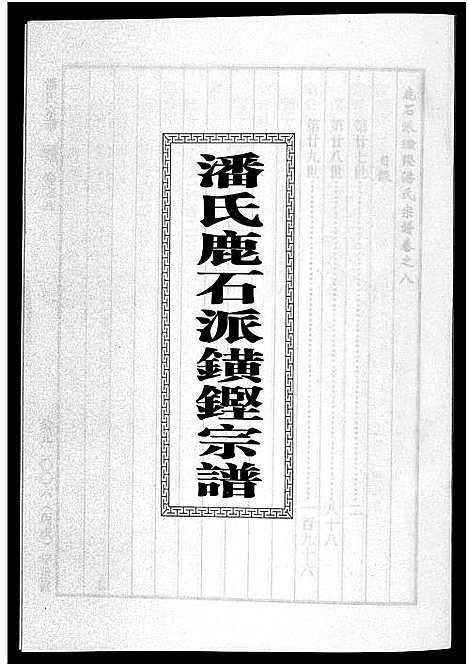 潘氏鹿石派鐄鏗宗譜
鹿石派鐄鏗潘氏宗譜卷之八
目錄
第廿七世…………二
第廿八世…………八十八
第廿九世…………一百九十六